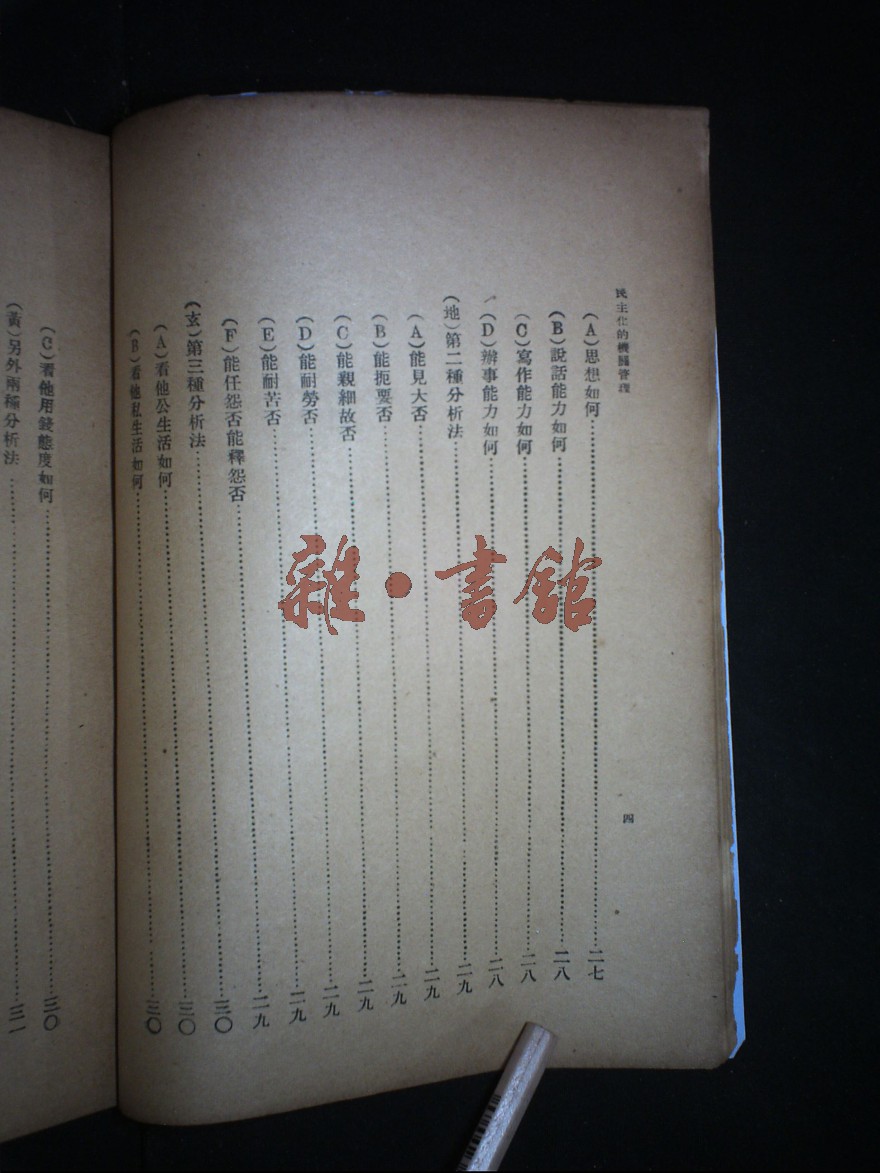 民主化的機關管理
四
(A)思想如何……二七
(B)說話能力如何……二八
(C)寫作能力如何……二八
(D)辦事能力如何……二八
(地)第二種分析法……二九
(A)能見大否……二九
(B)能扼要否……二九
(C)能親細故否……二九
(D)能耐勞否……二九
(E)能耐苦否……二九
(F)能任怨否能釋怨否……三〇
(玄)第三種分析法……三〇
(A)看他公生活如何……三〇
(B)看他私生活如何
(C)看他用錢態度如何……三〇
(黃)另外兩種分析法……三一
雜·書館